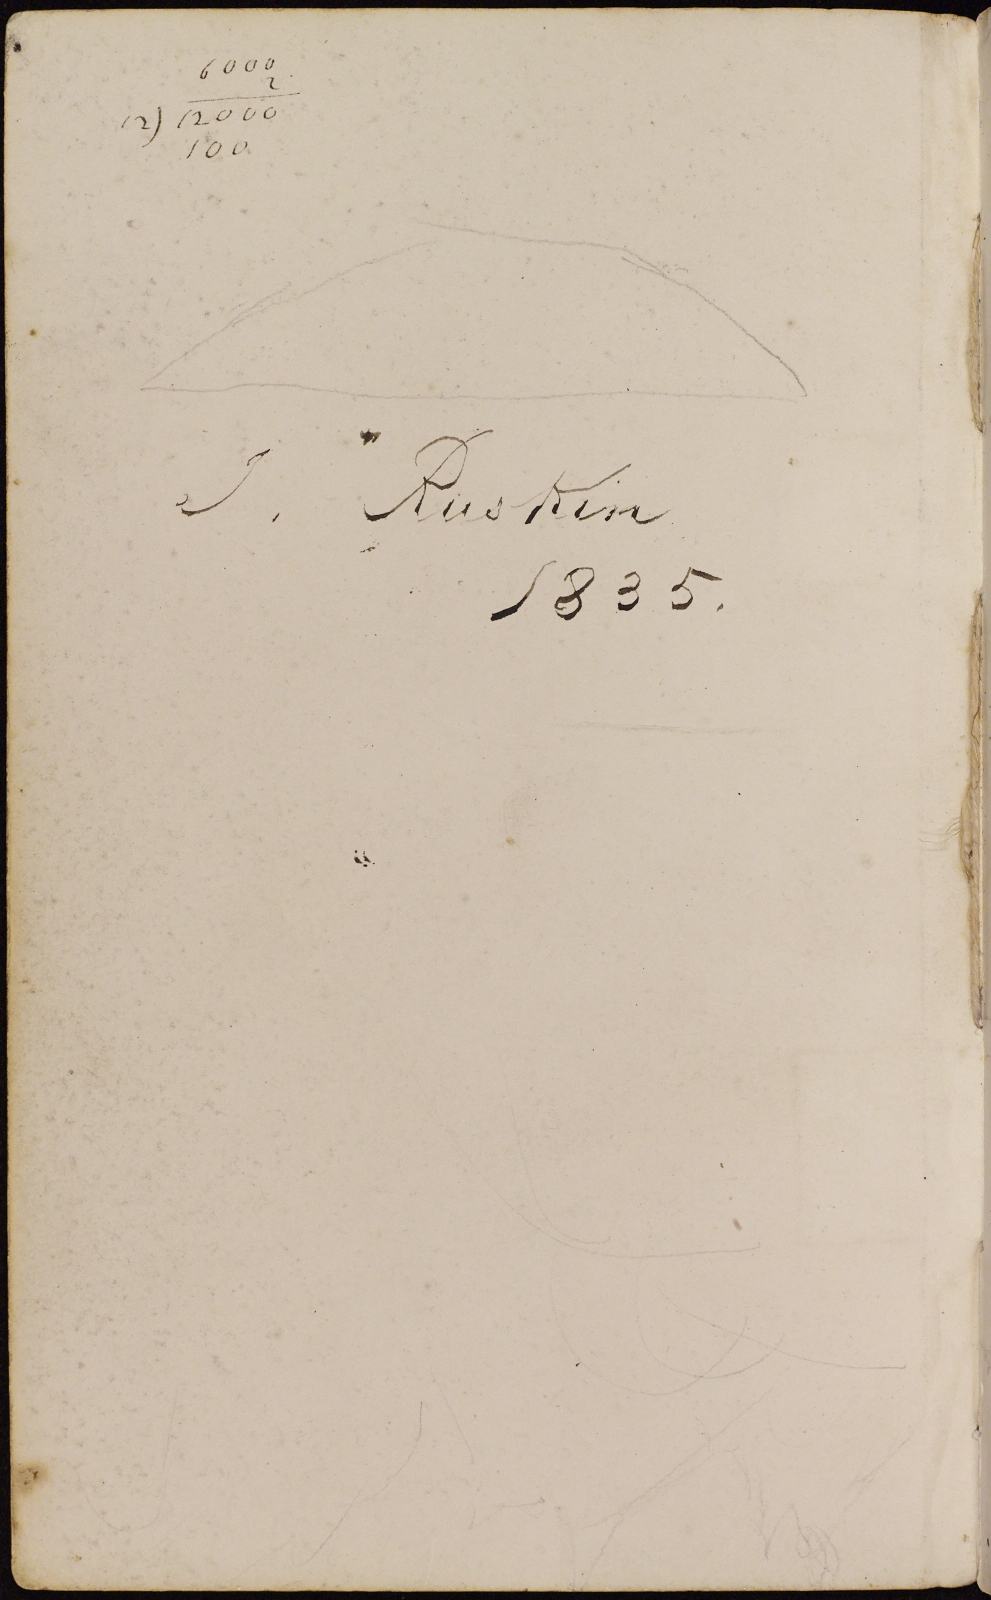 6000
2
12) 12000
100
J. Ruskin
1835.